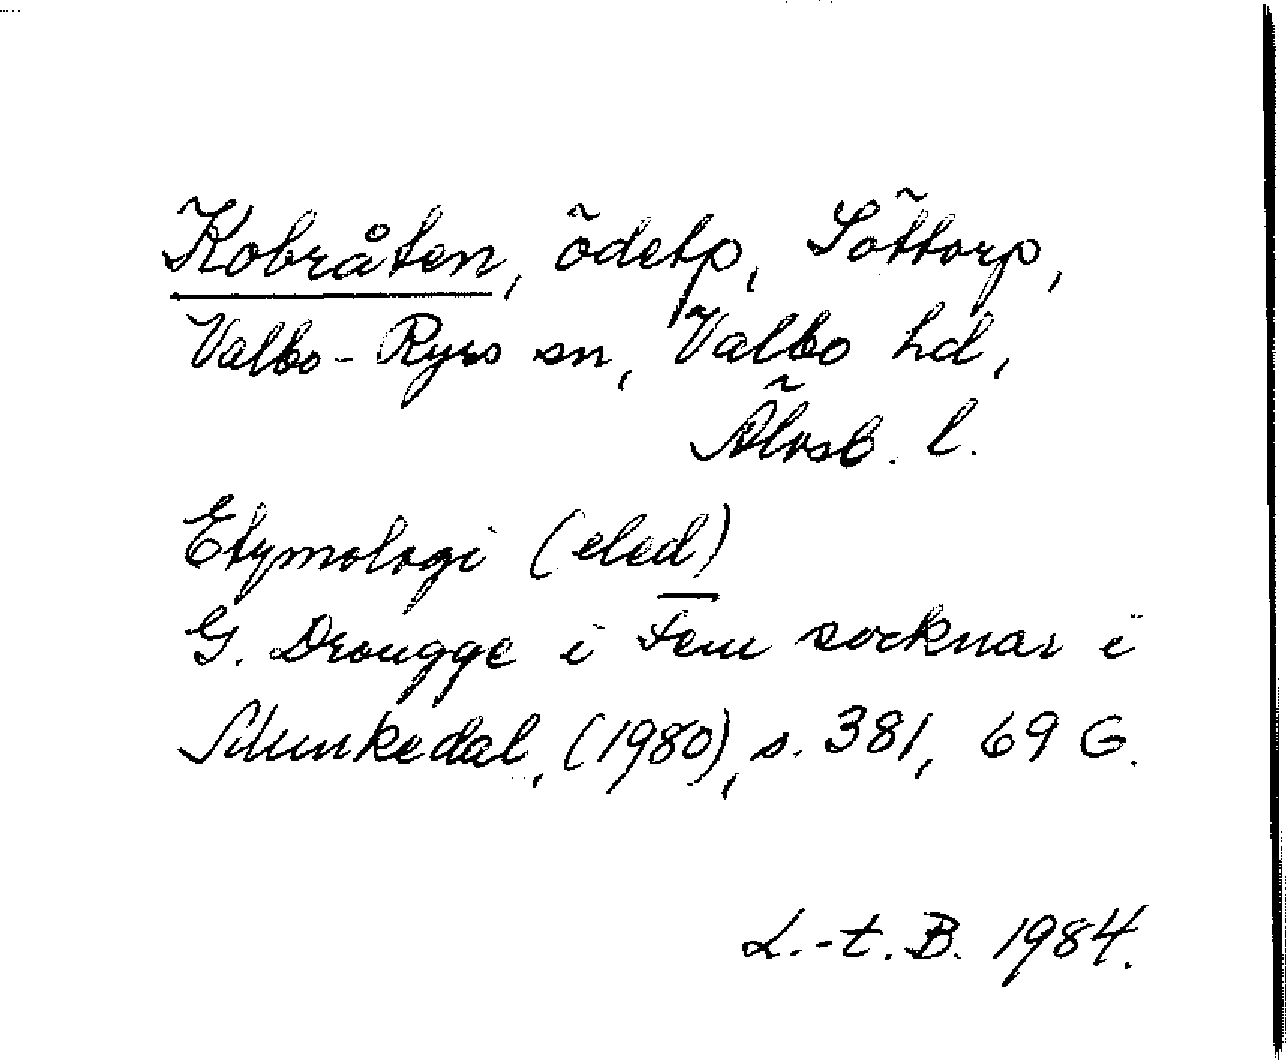 Kobråten, ödetp, Söttorp,
Valbo-Ryrs sn, Valbo hd,
Älvsb. l.
Etymologi (eled)
G. Drougge i Fem socknar i
Munkedal, (1980), s. 381, 69 G.
L.-t. B. 1984.